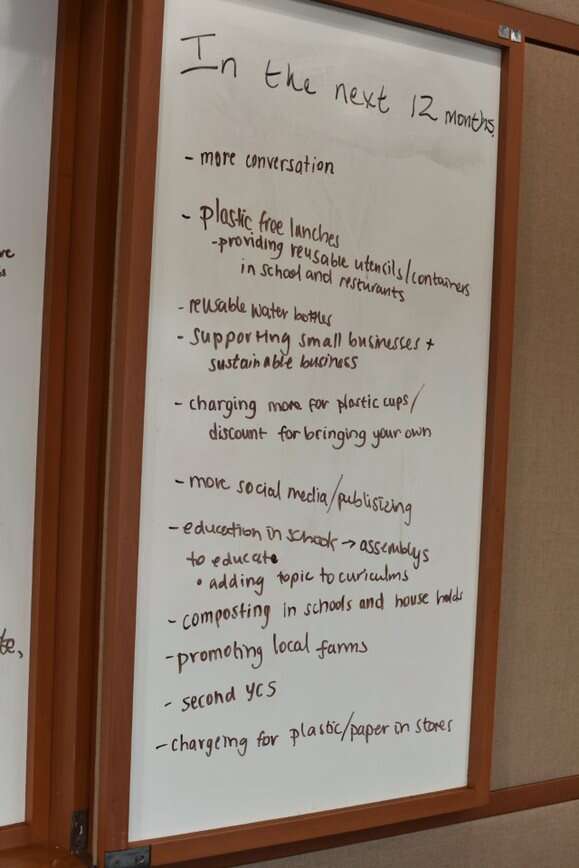 In the next 12 months.
- more conversation
- plastic free lunches
- providing reusable utencils/containers
in school and resturants
- reusable water bottles
- supporting small businesses +
sustainable business
- charging more for plastic cups/
discount for bringing your own
- more social media/publisizing
- education in school → assemblys
to educate
• adding topic to curiculms
- composting in schools and house holds
- promoting local farms
- second YCS
- chargeing for plastic/paper in stores
te,